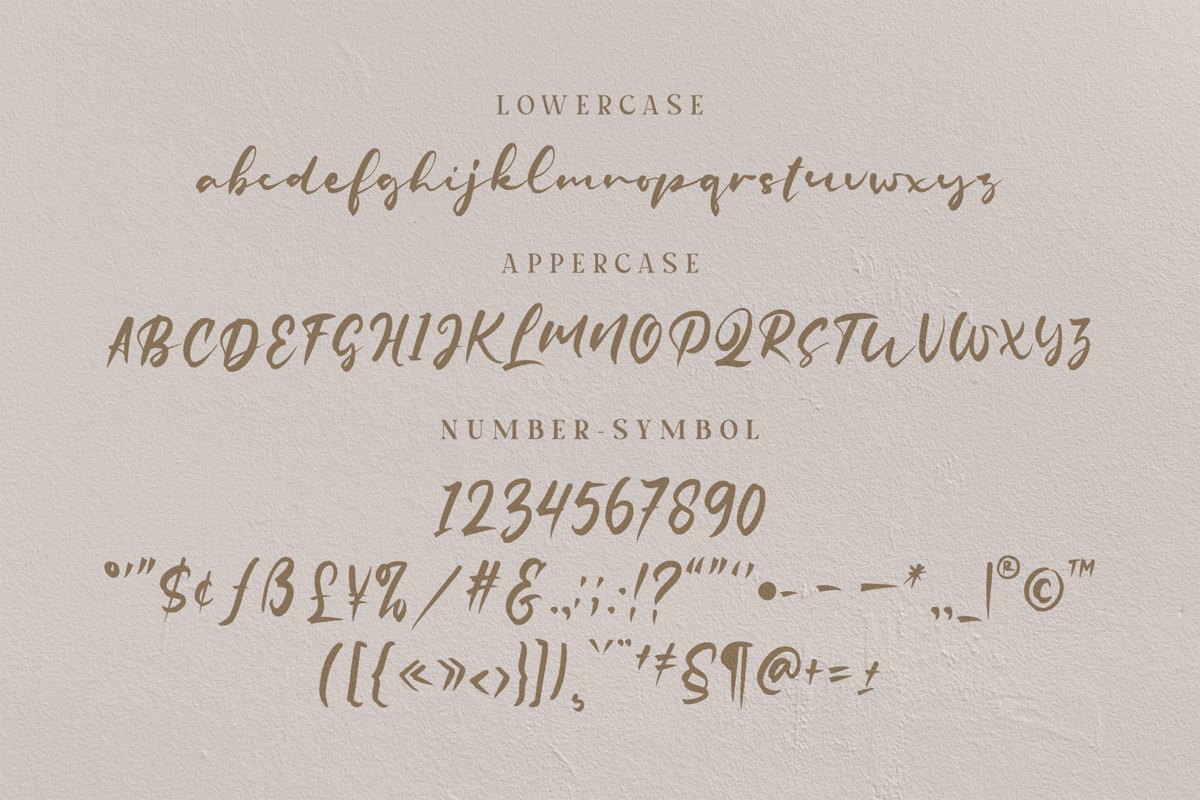 LOWERCASE
abcdefghijklmnopqrstuvwxyz
APPERCASE
ABCDEFGHIJKLMNOPQRSTUVWXYZ
NUMBER-SYMBOL
1234567890
°'"$¢ƒß£¥%/#&.,;:!?“”‘’•-–—*„_|®©™
([{«»‹›}])¸`´¨†‡§¶@+=±